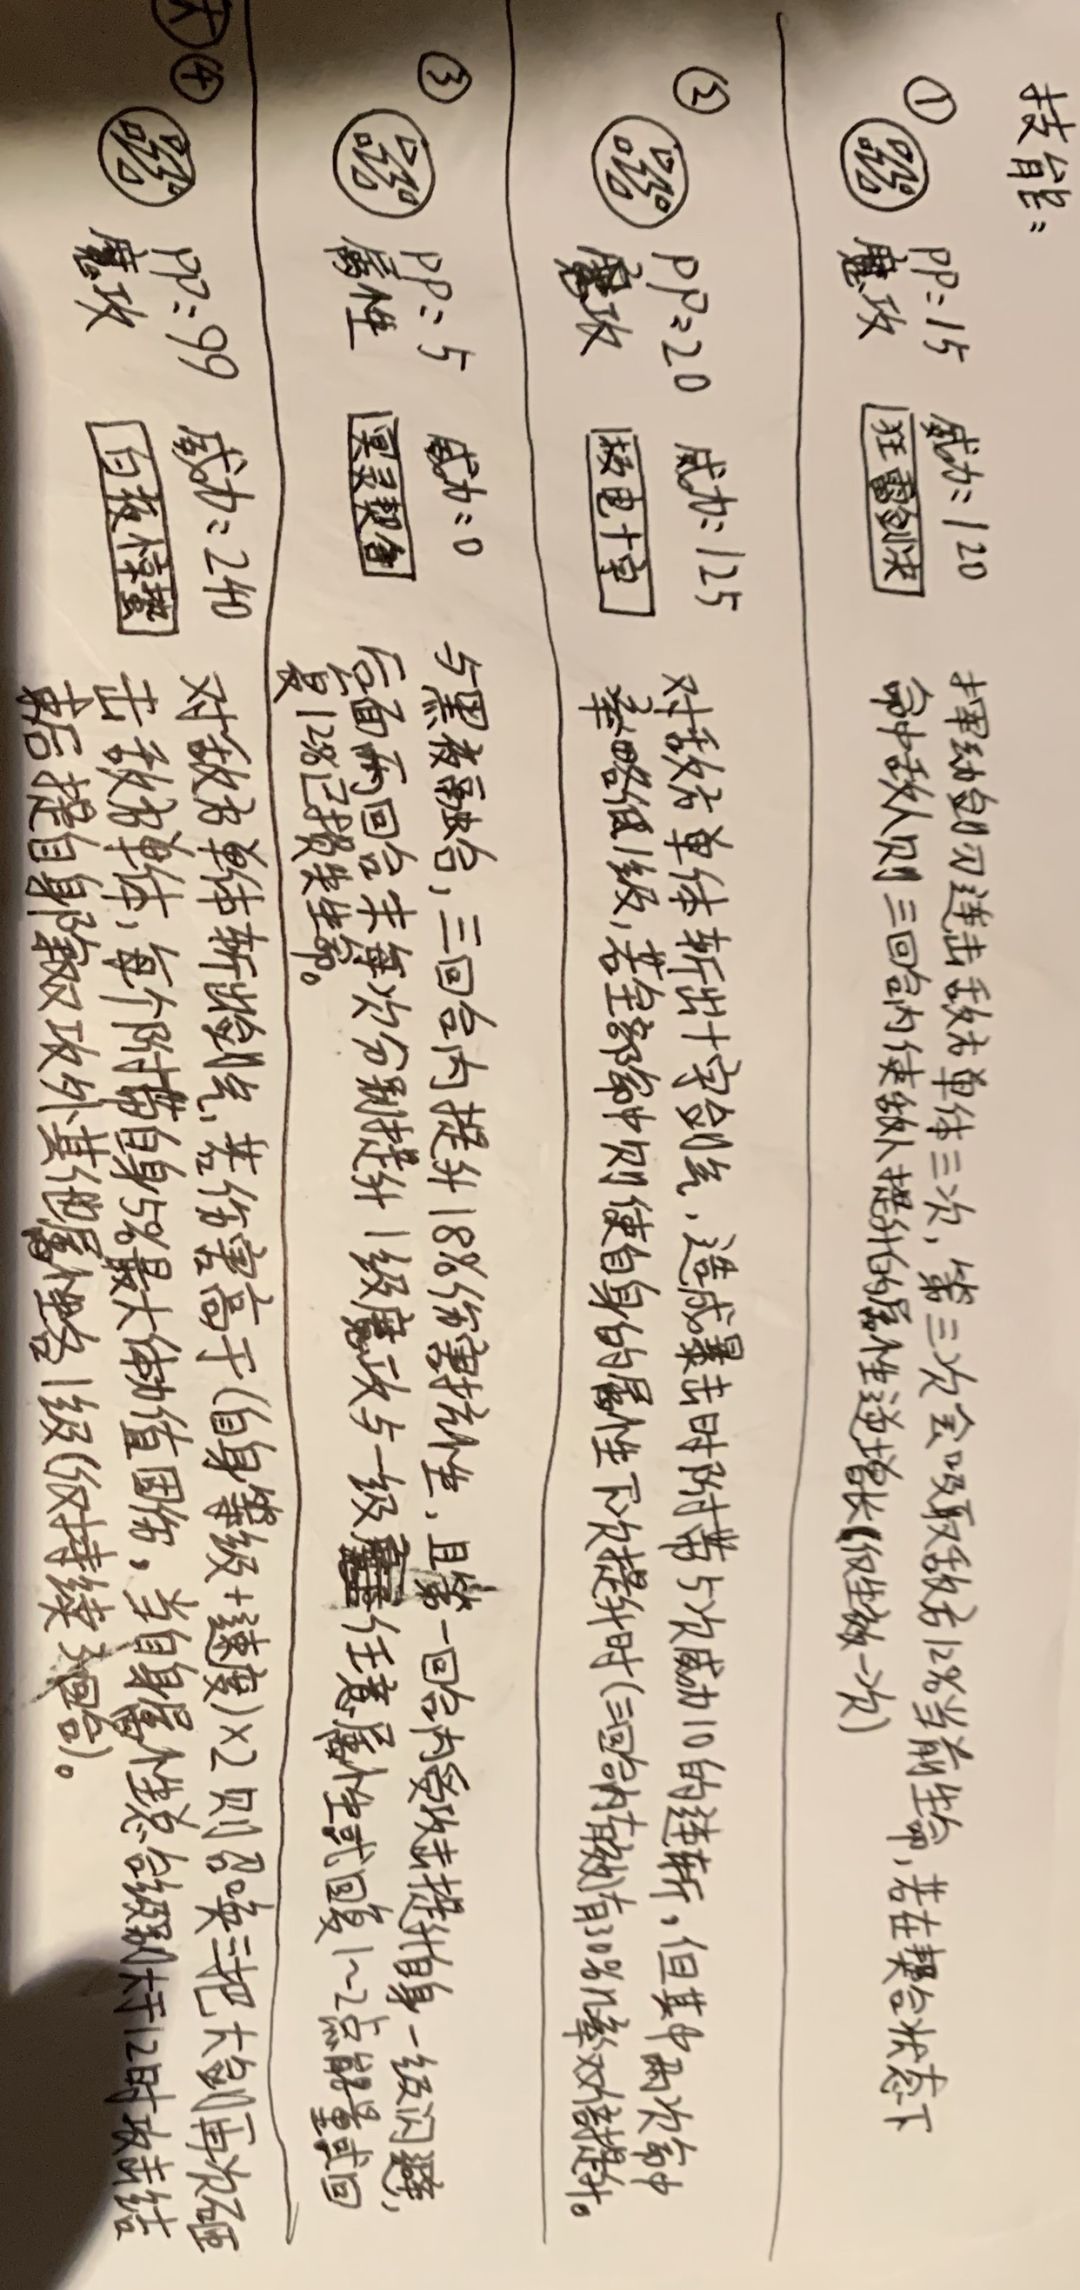 技能：
① PP=15 威力=120
魔攻 狂雷剑决
挥动剑刃连击敌方单体三次，第三次会吸取敌方12%当前生命，若在契合状态下
命中敌人则三回合内使敌人提升的属性逆增长(仅生效一次)
② PP=20 威力=125
魔攻 极电十字
对敌方单体斩出十字剑气，造成暴击时附带5次威力10的连斩，但其中两次命中
率略低1级，若全部命中则使自身的属性下次提升时(三回合内有效)有30%几率双倍提升。
③ PP=5 威力=0
属性 冥灵契合
与黑夜融合，三回合内提升18%伤害抗性，且第一回合内受攻击提升自身一级闪避，
后面两回合末每次分别提升1级魔攻与一级任意属性或回复1~2点能量或回
复12%已损失生命。
④ PP=99 威力=240
魔攻 白夜惊蛰
对敌方单体斩出剑气，若伤害高于(自身等级+速度)×2则召唤三把大剑再次砸
击敌方单体，每个附带自身5%最大体力值固伤，当自身属性总合级别大于12时攻击结
束后提自身除双攻外其他属性各1级(仅持续 回合)。